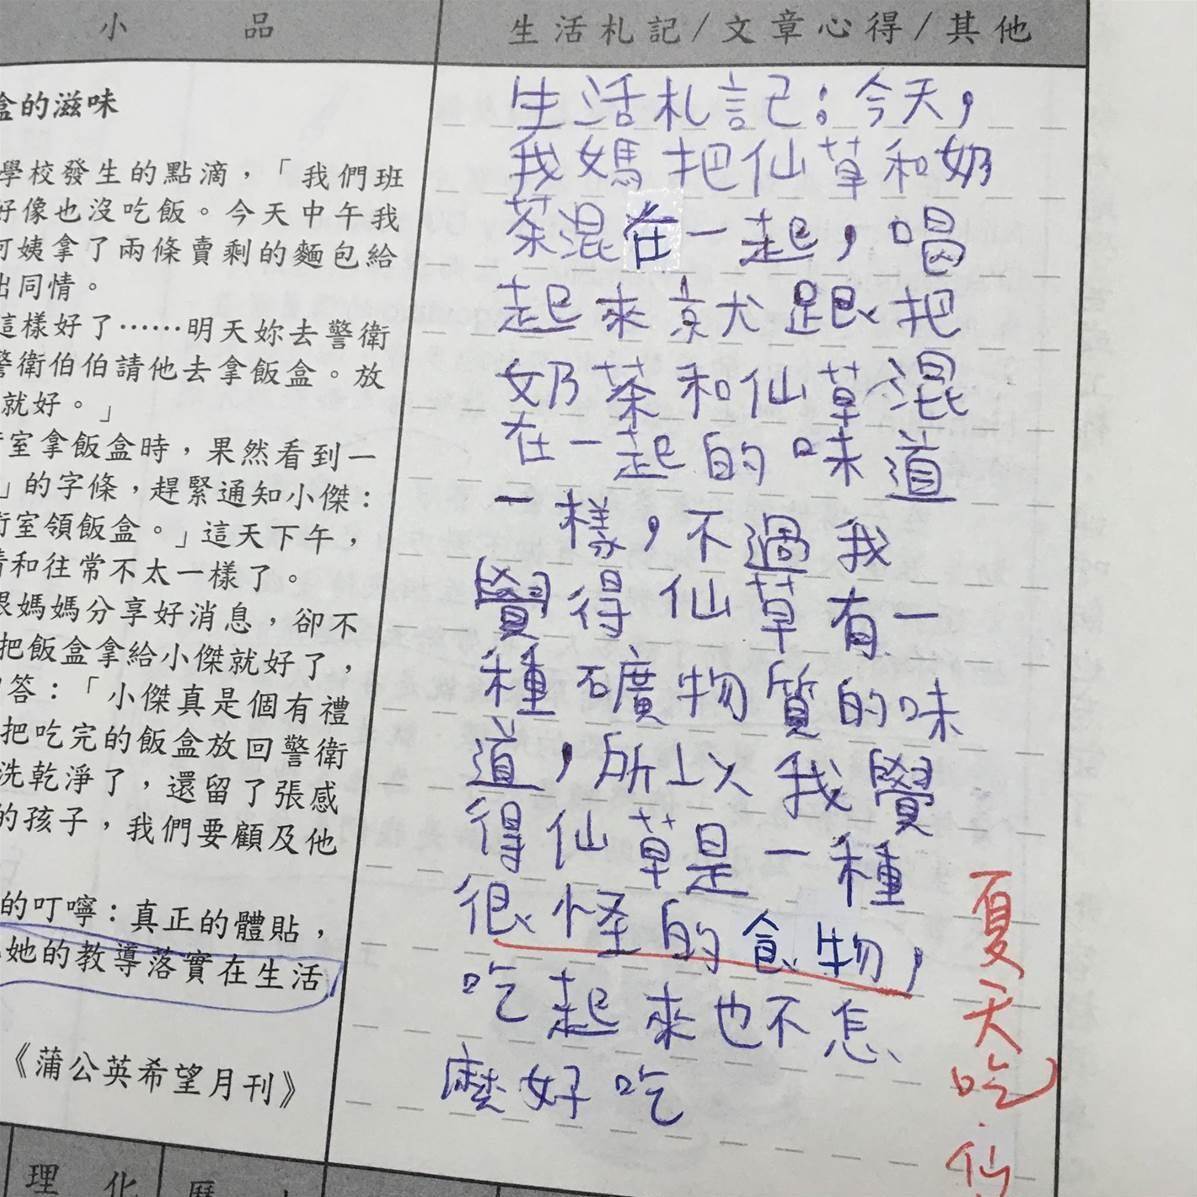 小品
盒的滋味
學校發生的點滴，「我們班
好像也沒吃飯。今天中午我
阿姨拿了兩條賣剩的麵包給
出同情。
這樣好了……明天妳去警衛
警衛伯伯請他去拿飯盒。放
就好。」
室拿飯盒時，果然看到一
」的字條，趕緊通知小傑：
衛室領飯盒。」這天下午，
情和往常不太一樣了。
跟媽媽分享好消息，卻不
把飯盒拿給小傑就好了，
答：「小傑真是個有禮
把吃完的飯盒放回警衛
洗乾淨了，還留了張感
的孩子，我們要顧及他
的叮嚀：真正的體貼，
她的教導落實在生活
《蒲公英希望月刊》
理化
生活札記/文章心得/其他
生活札記：今天，
我媽把仙草和奶
茶混在一起，喝
起來就跟把
奶茶和仙草混
在一起的味道
一樣，不過我
覺得仙草有一
種礦物質的味
道，所以我覺
得仙草是一種
很怪的食物，
吃起來也不怎
麼好吃
夏天吃仙